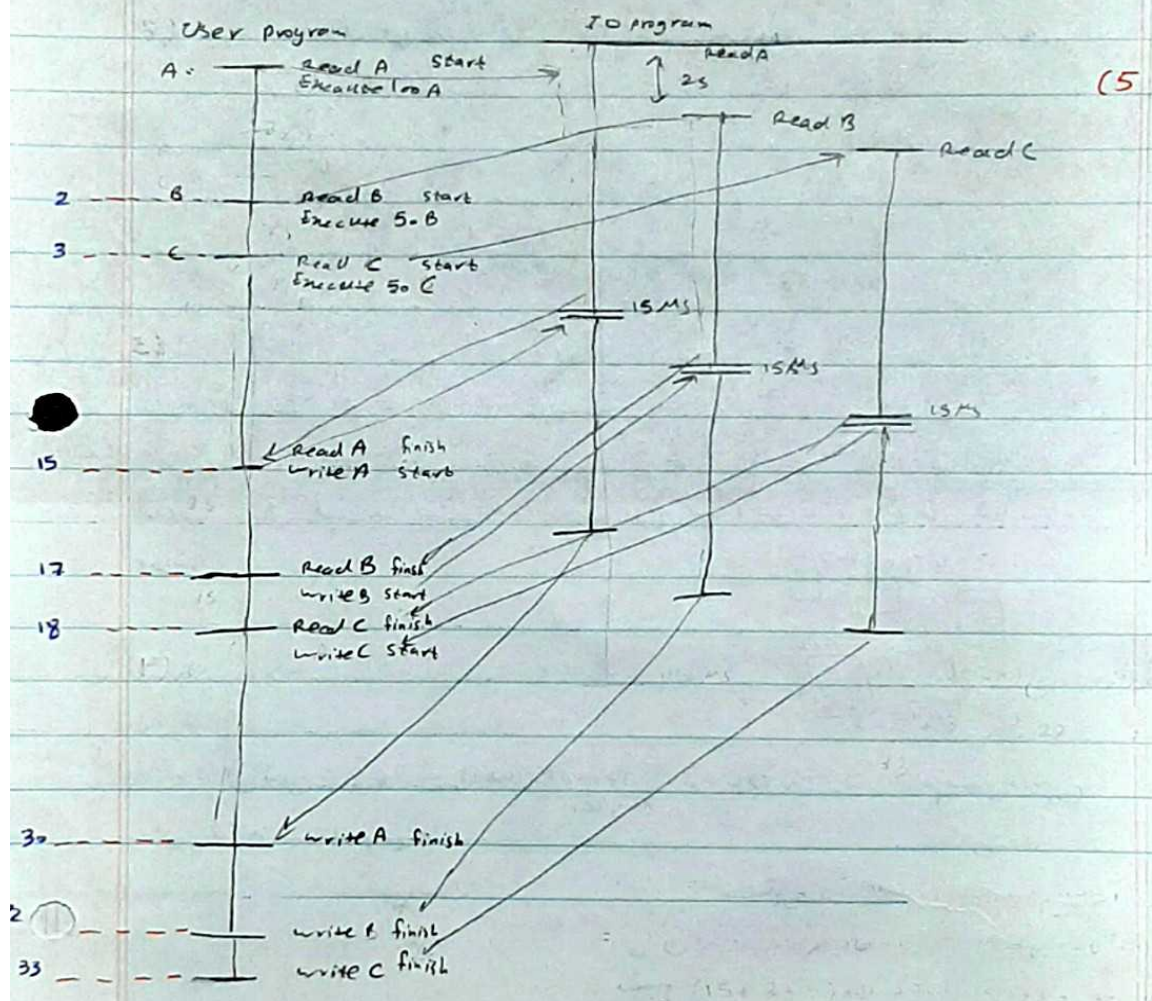 User program
IO program
A:
Read A start
Execute 100 A
Read A
2s
(5
Read B
Read C
2
B
Read B start
Execute 50 B
3
C
Read C start
Execute 50 C
15 Ms
15 Ms
15 Ms
15
Read A finish
write A start
17
Read B finish
write B start
18
Read C finish
write C start
30
write A finish
2
write B finish
33
write C finish